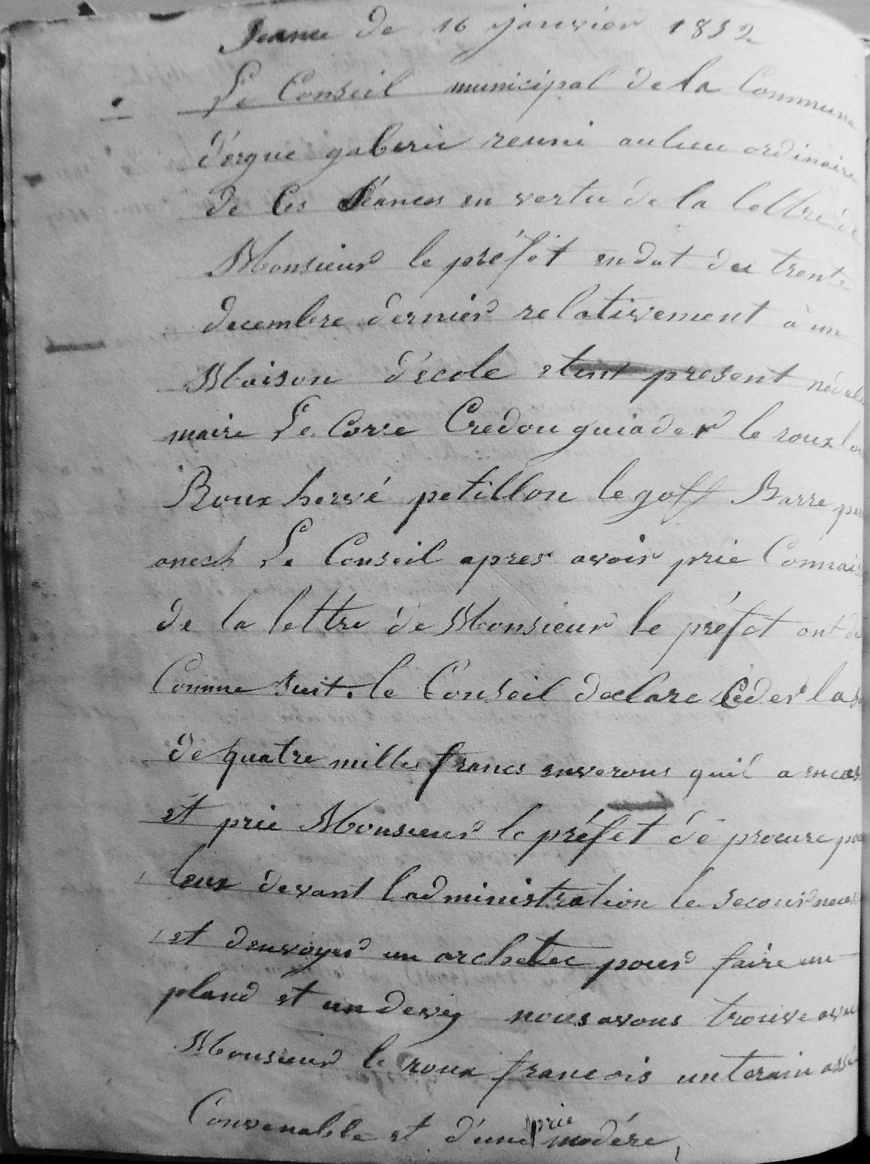 Seance de 16 janvier 1852
Le Conseil municipal de la Commune
d'ergue gaberic reuni au lieu ordinaire
de Ces Séances en vertu de la lettre de
Monsieur le préfét en dat du trente
decembre dernier relativement a un
Maison d'école etant present
maire Le Corre Credou guiader le roux
Roux hervé petillon le goff Barre
Le Conseil apres avoir prie Connais
de la lettre de Monsieur le préfet ont
Comme suit. le Conseil declare Céder la
de quatre mille francs enverons quil a
et prie Monsieur le préfet de procure
leux devant ladministration le secour
et d'envoyer un archetec pour faire un
pland et un devig nous avons trouve
Monsieur le roux francois un terain
Convenable et d'une prie modére,